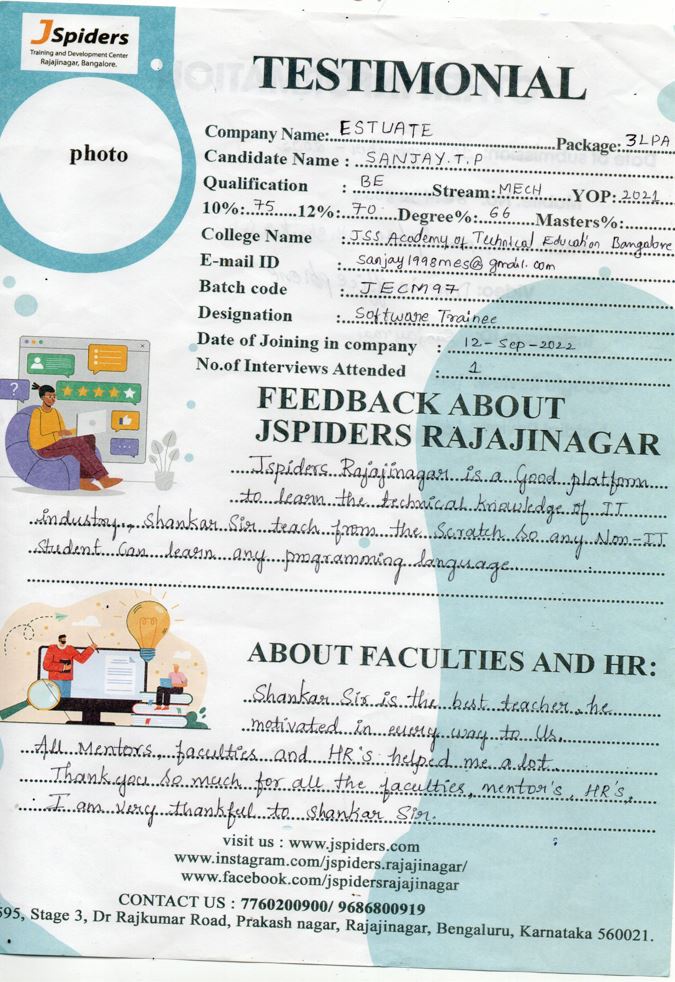 JSpiders
Training and Development Center
Rajajinagar, Bangalore.
TESTIMONIAL
photo
Company Name: ESTUATE Package: 3LPA
Candidate Name : SANJAY.T.P
Qualification : BE Stream: MECH YOP: 2021
10%: 75 12%: 70 Degree%: 66 Masters%:
College Name : JSS Academy of Technical Education Bangalore
E-mail ID : sanjay1998mes@gmail.com
Batch code : JECM97
Designation : Software Trainee
Date of Joining in company : 12-Sep-2022
No.of Interviews Attended : 1
FEEDBACK ABOUT
JSPIDERS RAJAJINAGAR
Jspiders Rajajinagar is a Good platform
to learn the technical knowledge of IT
industry, Shankar Sir teach from the Scratch So any Non-IT
Student Can learn any programming language
ABOUT FACULTIES AND HR:
Shankar Sir is the best teacher, he
motivated in every way to Us.
All Mentors, faculties and HR's helped me a lot
Thank you So much for all the faculties, mentor's, HR's,
I am very thankful to Shankar Sir.
visit us : www.jspiders.com
www.instagram.com/jspiders.rajajinagar/
www.facebook.com/jspidersrajajinagar
CONTACT US : 7760200900/ 9686800919
595, Stage 3, Dr Rajkumar Road, Prakash nagar, Rajajinagar, Bengaluru, Karnataka 560021.